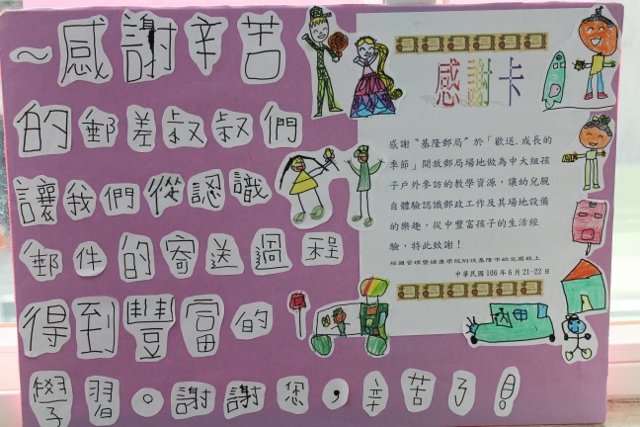 ～感謝辛苦
的郵差叔叔們
讓我們從認識
郵件的寄送過程
得到豐富的
學習。謝謝您，辛苦了！
感謝卡
感謝〝基隆郵局〞於「歡送.成長的
季節」開放郵局場地做為中大組孩
子戶外參訪的教學資源，讓幼兒親
自體驗認識郵政工作及其場地設備
的樂趣，從中豐富孩子的生活經
驗，特此致謝！
中華民國106年6月21-22日